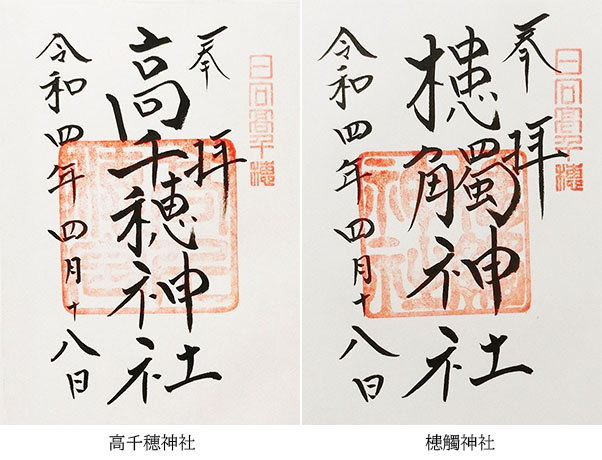 日向高千穂
奉拝
高千穂神社
令和四年四月十八日
日向高千穂
奉拝
槵觸神社
令和四年四月十八日
高千穂神社
槵觸神社